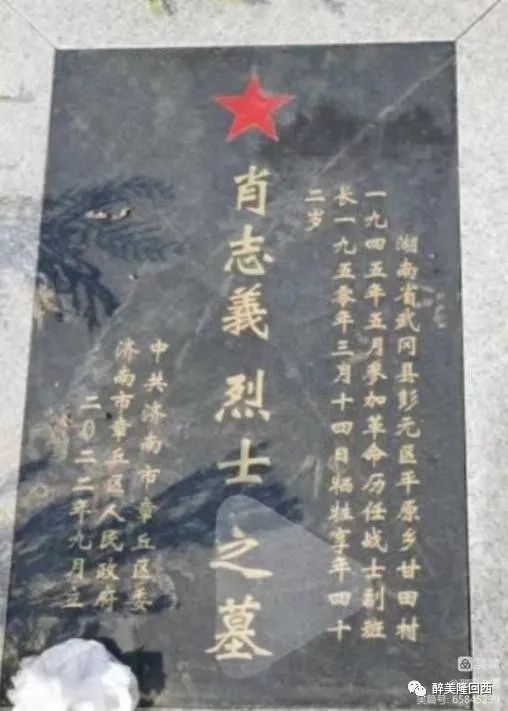 湖南省武冈县彭元区平原乡甘田村
一九四五年五月参加革命历任战士副班
长一九五零年三月十四日牺牲享年四十
二岁
肖志義烈士之墓
中共济南市章丘区委
济南市章丘区人民政府
二〇二二年九月立
美篇
醉美隆回西
美篇号: 65845299